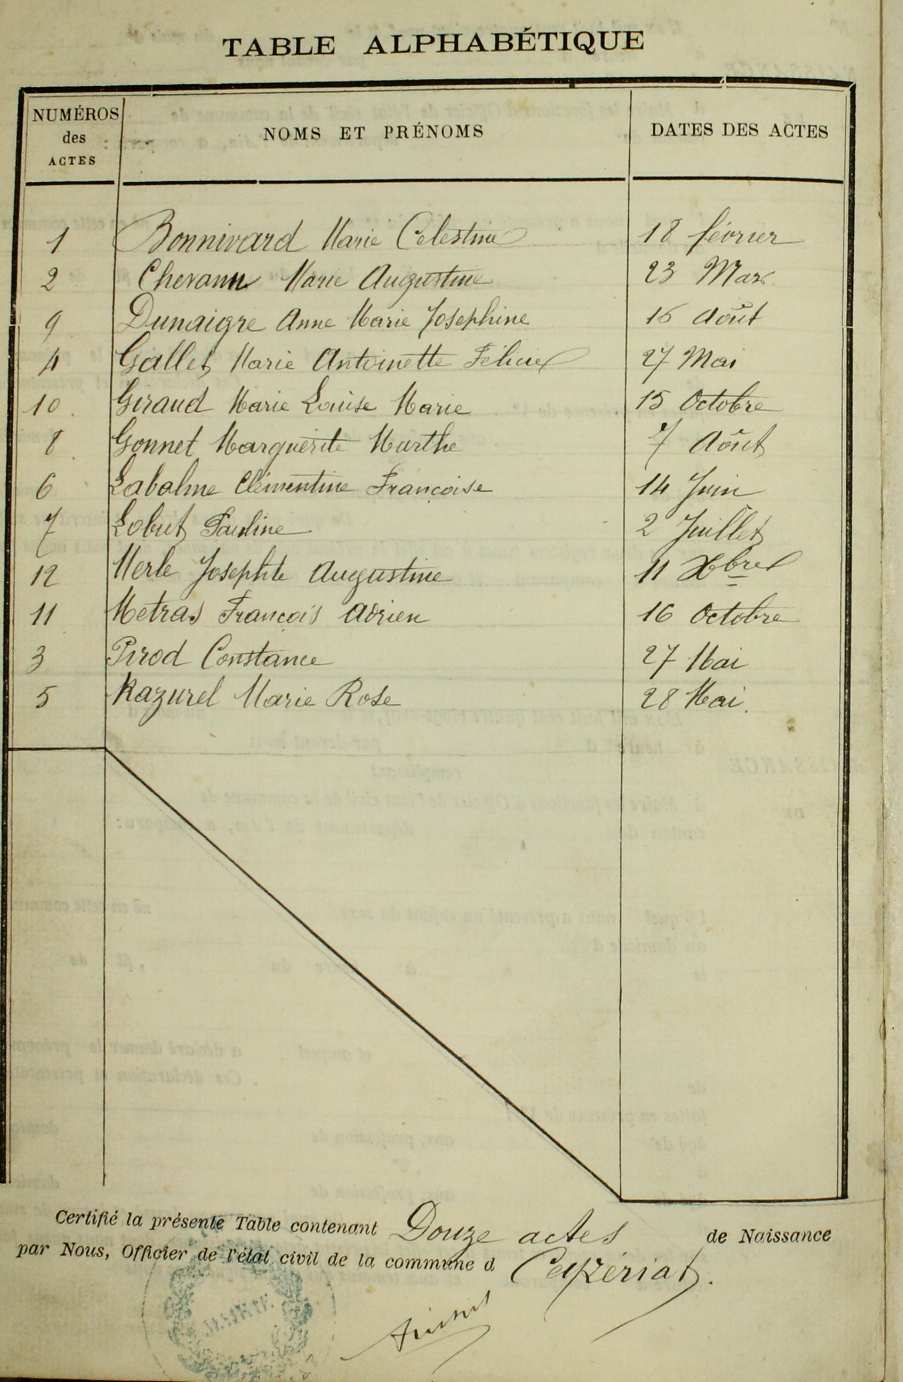 TABLE ALPHABÉTIQUE
NUMÉROS des ACTES NOMS ET PRÉNOMS DATES DES ACTES
1 Bonnivard Marie Celestine 18 février
2 Chevann Marie Augustine 23 Mars
9 Dunaigre Anne Marie Josephine 16 Août
4 Gallet Marie Antoinette Félicie 27 Mai
10 Giraud Marie Louise Marie 15 Octobre
8 Gonnet Marguerite Marthe 7 Août
6 Labalme Clémentine Françoise 14 Juin
7 Lobut Pauline 2 Juillet
12 Merle Josephte Augustine 11 Xbre
11 Metras François Adrien 16 Octobre
3 Pirod Constance 27 Mai
5 Razurel Marie Rose 28 Mai.
Certifié la présente Table contenant Douze actes de Naissance
par Nous, Officier de l'état civil de la commune d Ceyzériat.
MAIRIE